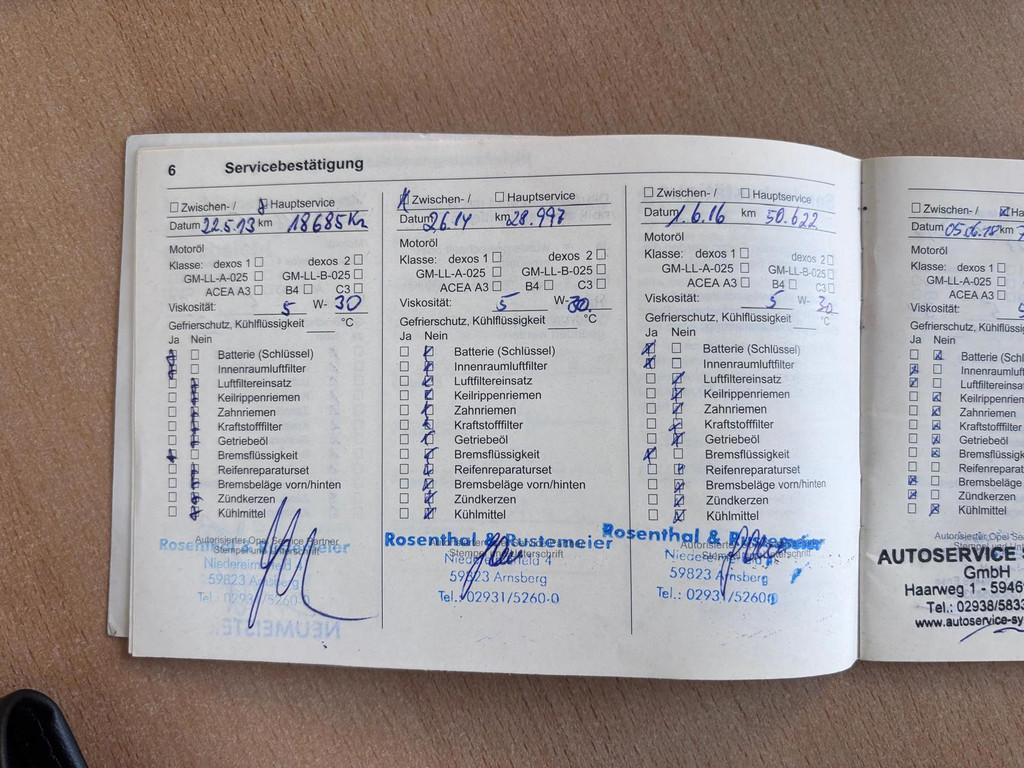 6 Servicebestätigung
Zwischen- / Hauptservice
Datum 22.5.13 km 18685 Km
Motoröl
Klasse: dexos 1 dexos 2
GM-LL-A-025 GM-LL-B-025
ACEA A3 B4 C3
Viskosität: 5 W- 30
Gefrierschutz, Kühlflüssigkeit °C
Ja Nein
Batterie (Schlüssel)
Innenraumluftfilter
Luftfiltereinsatz
Keilrippenriemen
Zahnriemen
Kraftstofffilter
Getriebeöl
Bremsflüssigkeit
Reifenreparaturset
Bremsbeläge vorn/hinten
Zündkerzen
Kühlmittel
Autorisierter Opel Service Partner
Stempel und Unterschrift
59823 Arnsberg
Tel.: 02931/5260-0
Zwischen- / Hauptservice
Datum 26.14 km 28.997
Motoröl
Klasse: dexos 1 dexos 2
GM-LL-A-025 GM-LL-B-025
ACEA A3 B4 C3
Viskosität: 5 W- 30
Gefrierschutz, Kühlflüssigkeit °C
Ja Nein
Batterie (Schlüssel)
Innenraumluftfilter
Luftfiltereinsatz
Keilrippenriemen
Zahnriemen
Kraftstofffilter
Getriebeöl
Bremsflüssigkeit
Reifenreparaturset
Bremsbeläge vorn/hinten
Zündkerzen
Kühlmittel
Rosenthal & Rustemeier
59823 Arnsberg
Tel.: 02931/5260-0
Zwischen- / Hauptservice
Datum 1.6.16 km 50.622
Motoröl
Klasse: dexos 1 dexos 2
GM-LL-A-025 GM-LL-B-025
ACEA A3 B4 C3
Viskosität: 5 W- 30
Gefrierschutz, Kühlflüssigkeit °C
Ja Nein
Batterie (Schlüssel)
Innenraumluftfilter
Luftfiltereinsatz
Keilrippenriemen
Zahnriemen
Kraftstofffilter
Getriebeöl
Bremsflüssigkeit
Reifenreparaturset
Bremsbeläge vorn/hinten
Zündkerzen
Kühlmittel
Rosenthal & Rustemeier
59823 Arnsberg
Tel.: 02931/5260
Zwischen- / Ha
Datum km
Motoröl
Klasse: dexos 1
GM-LL-A-025
ACEA A3
Viskosität:
Gefrierschutz, Kühlflüssig
Ja Nein
Batterie (Schl
Innenraumluft
Luftfiltereinsa
Keilrippenrie
Zahnriemen
Kraftstofffilter
Getriebeöl
Bremsflüssigk
Reifenreparat
Bremsbeläge
Zündkerzen
Kühlmittel
AUTOSERVICE
GmbH
Haarweg 1 - 5946
Tel.: 02938/5833
www.autoservice-sy